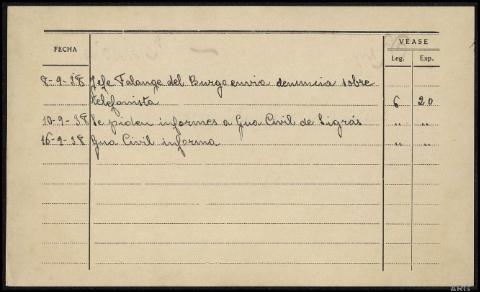 VÉASE
FECHA
Leg. Exp.
8-9-38 Jefe Falange del Burgo envia denuncia sobre
telefonista 6 20
10-9-38 Se piden informes a Gua Civil de Ligrás " "
16-9-38 Gua Civil informa " "